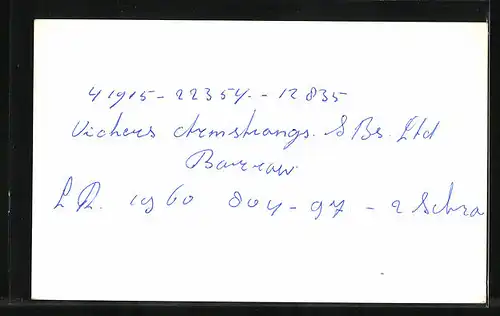 41915 - 22354 - 12835
Vickers Armstrongs. SBs. Ltd
Barrow
L R. 1960 804 - 97 - 2 Schra